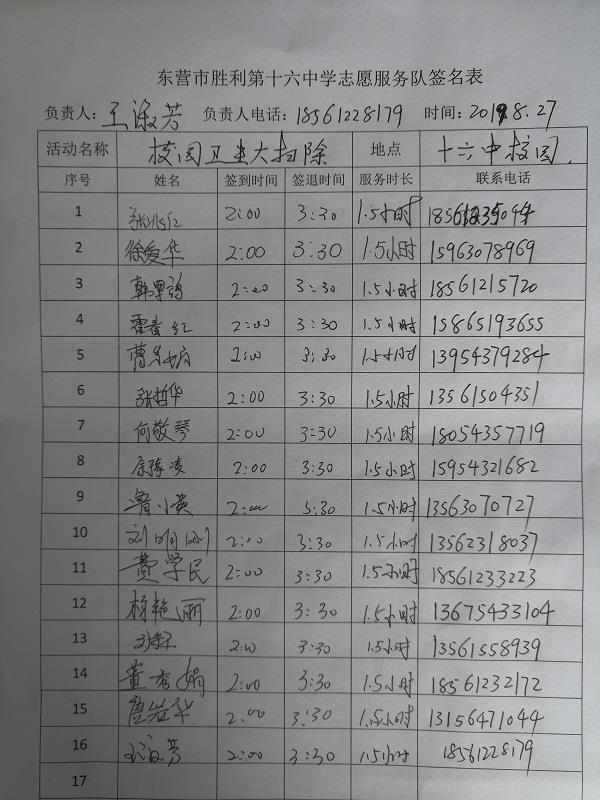 东营市胜利第十六中学志愿服务队签名表
负责人：王淑芳 负责人电话：18561228179 时间：2019.8.27
活动名称 校园卫生大扫除 地点 十六中校园
序号 姓名 签到时间 签退时间 服务时长 联系电话
1 2:00 3:30 1.5小时
2 徐爱华 2:00 3:30 1.5小时 15963078969
3 2:00 3:30 1.5小时 18561215720
4 2:00 3:30 1.5小时 15865193655
5 2:00 3:30 1.5小时 13954379284
6 张哲华 2:00 3:30 1.5小时 13561504351
7 何敬琴 2:00 3:30 1.5小时 18054357719
8 2:00 3:30 1.5小时 15954321682
9 鲁小英 2:00 3:30 1.5小时 13563070727
10 刘明刚 2:00 3:30 1.5小时 13562318037
11 费学民 2:00 3:30 1.5小时 18561233223
12 杨艳丽 2:00 3:30 1.5小时 13675433104
13 2:00 3:30 1.5小时 13561558939
14 董秀娟 2:00 3:30 1.5小时 18561232172
15 唐岩华 2:00 3:30 1.5小时 13156471044
16 王淑芳 2:00 3:30 1.5小时 18561228179
17